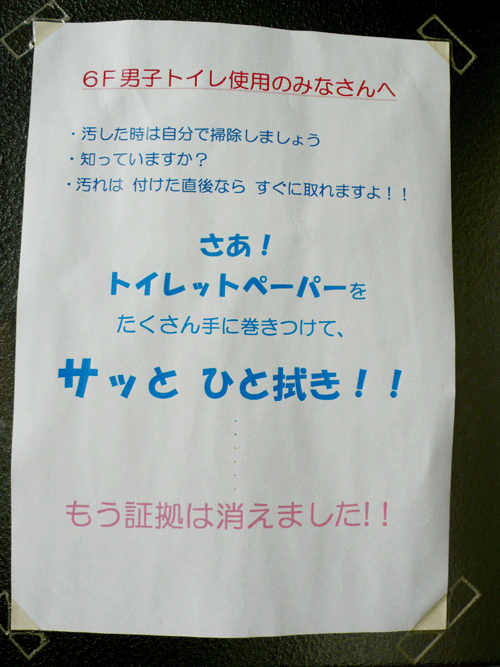 6F男子トイレ使用のみなさんへ
・汚した時は自分で掃除しましょう
・知っていますか？
・汚れは 付けた直後なら すぐに取れますよ！！
さあ！
トイレットペーパーを
たくさん手に巻きつけて、
サッと ひと拭き！！
・
・
・
・
・
・
もう証拠は消えました!!